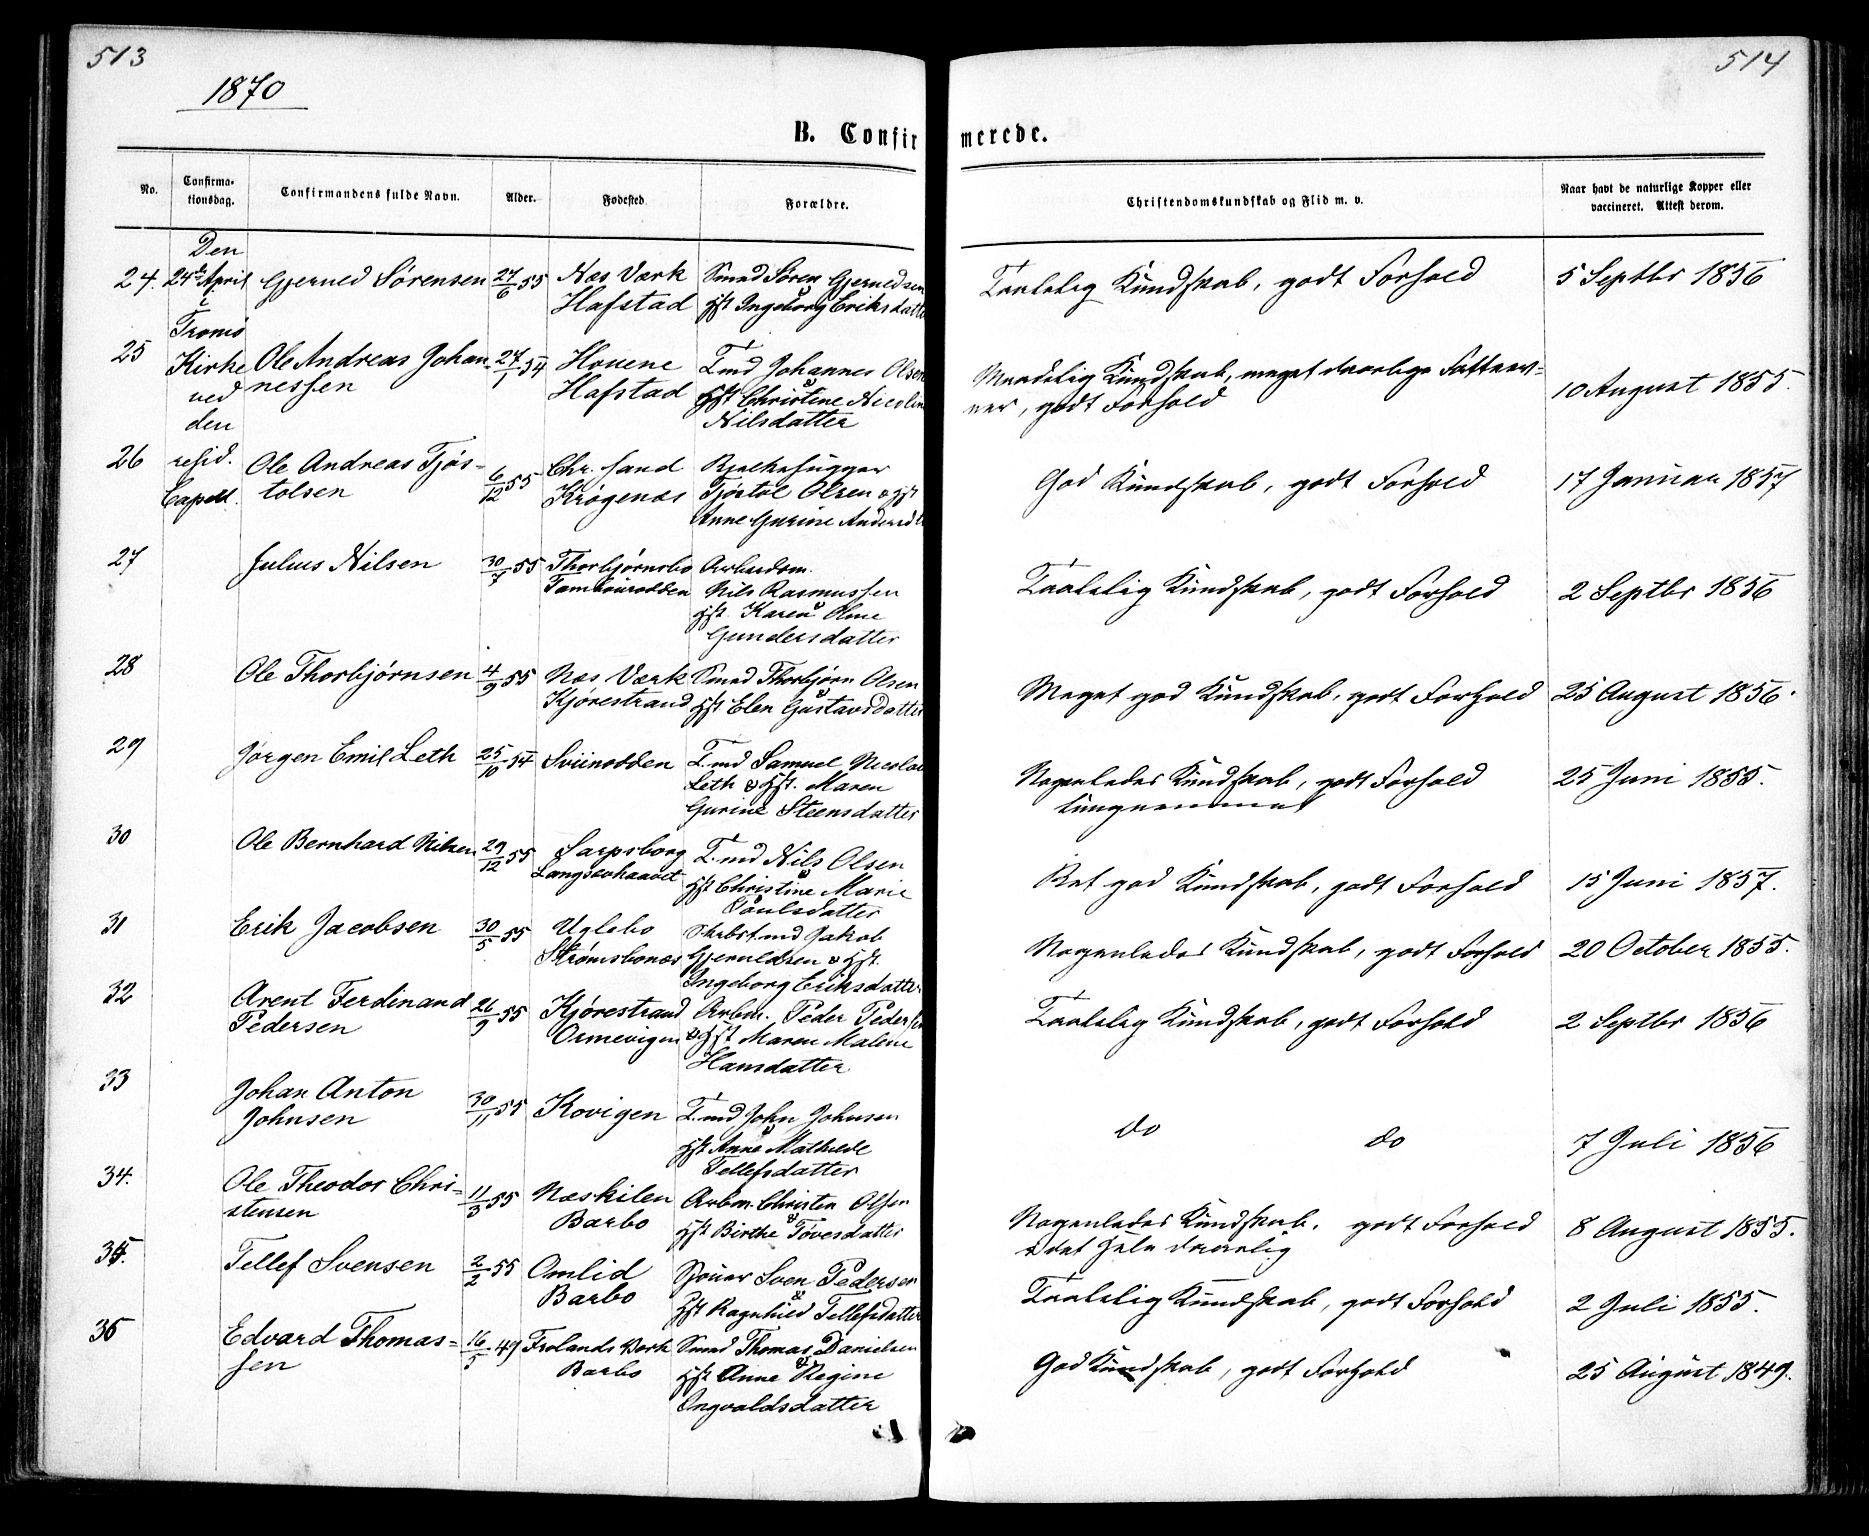 513
514
1870
B. Confirmerede.
No.
Confirma-
tionsdag.
Confirmandens fulde Navn.
Alder.
Fødested
Forældre.
Christendomskundskab og Flid m. v.
Naar havt de naturlige Kopper eller
vaccineret. Attest derom.
Den
24de April
i
Tromø
Kirke
ved
den
resid.
Capell.
24. Gjerued Sørensen 27/6 55 Næs Værk
Hafstad
Smed Søren Gjeruedsen
Hst Ingeborg Eriksdatter
Taalelig Kundskab, godt Forhold 5 Septbr 1856
25 Ole Andreas Johan-
nessen
27/1 54 Hovene
Hafstad
T.md Johannes Olsen
& Hst Christine Nicoline
Nilsdatter
Maadelig Kundskab, meget daarlige Fatteev-
ner, godt Forhold
10 August 1855.
26 Ole Andreas Tjøs-
tolsen
6/12 55 Chr. sand
Krøgenæs
Bjelkehugger
Tjøstol Olsen & Hst
Anne Gurine Andersdt
God Kundskab, godt Forhold 17 Januar 1857
27 Julius Nilsen 30/7 55 Thorbjørnsbo
Tambourodden
Arbeidsm.
Nils Rasmussen
& Hst. Karen Oline
Gundersdatter
Taalelig Kundskab, godt Forhold 2 Septbr 1856
28 Ole Thorbjørnsen 4/9 55 Næs Værk
Kjørestrand
Smed Thorbjørn Olsen
& Hst Elen Gustavsdatter
Meget god Kundskab, godt Forhold 25 August 1856.
29 Jørgen Emil Leth 25/10 54 Sviinodden T.md Samuel Nicolai
Leth & Hst. Maren
Gurine Steensdatter
Nogenledes Kundskab, godt Forhold
tungnemmet
25 Juni 1855.
30 Ole Bernhard Nilsen 29/12 55 Sarpsborg
Langsevhaavet
T.md Nils Olsen
& Hst Christine Marie
Poulsdatter
Ret god Kundskab, godt Forhold 15 Juni 1857.
31 Erik Jacobsen 30/5 55 Uglebo
Strømsbonæs
Skibst.md Jakob
Gjeruldsen & Hst.
Ingeborg Eriksdatter
Nogenledes Kundskab, godt Forhold 20 October 1855.
32 Arent Ferdinand
Pedersen
26/9 55 Kjørestrand
Ormevigen
Arbm. Peder Pedersen
& Hst Maren Malene
Hansdatter
Taalelig Kundskab, godt Forhold 2 Septbr 1856
33 Johan Anton
Johnsen
30/11 55 Kovigen T.md John Johnsen
& Hst Anne Mathilde
Tellefsdatter
do do 7 Juli 1856
34. Ole Theodor Chri-
stensen
11/3 55 Næskilen
Barbo
Arbm. Christen Olsen
& Hst Birthe Tovesdatter
Nogenledes Kundskab, godt Forhold
i det Hele daarlig
8 August 1855.
35. Tellef Svensen 2/2 55 Omlid
Barbo
Sjouer Sven Pedersen
& Hst Ragnhild Tellefsdatter
Taalelig Kundskab, godt Forhold 2 Juli 1855.
36 Edvard Thomas-
sen
16/5 49 Frolands Værk
Barbo
Smed Thomas Danielsen
& Hst Anne Regine
Ingvaldsdatter
God Kundskab, godt Forhold 25 August 1849.